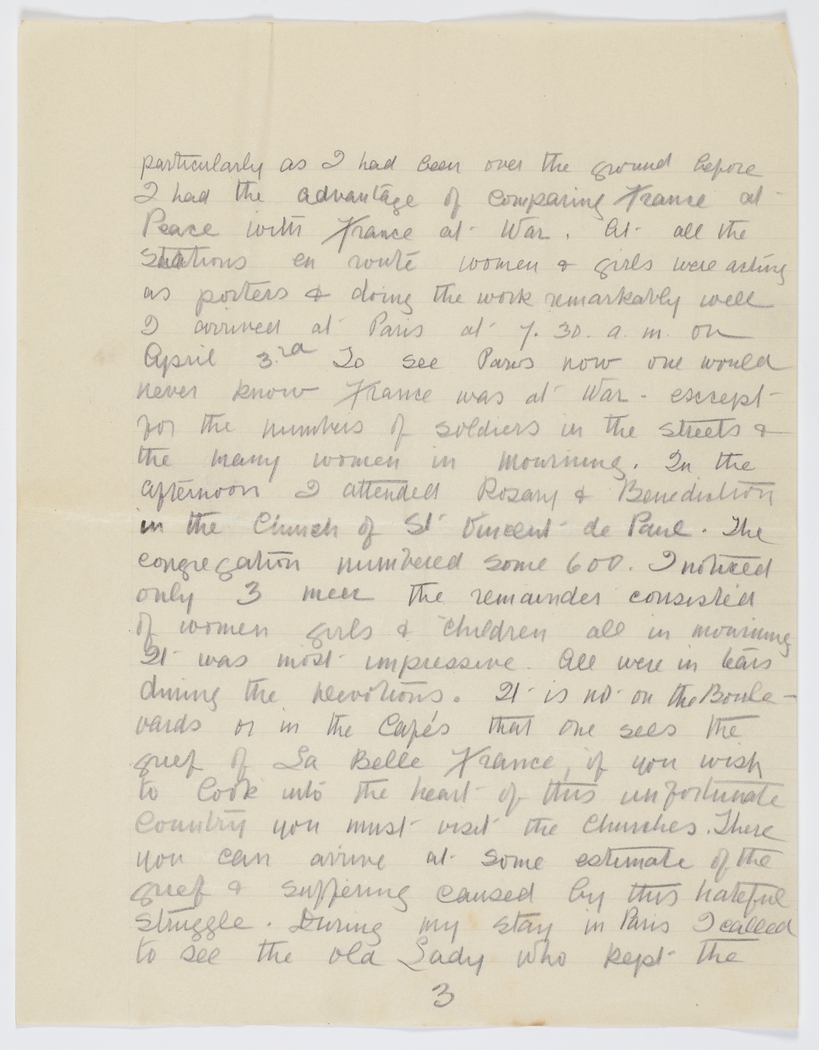 particularly as I had been over the ground before
I had the advantage of comparing France at
Peace with France at War. At all the
Stations en route women & girls were acting
as porters & doing the work remarkably well
I arrived at Paris at 7.30. a.m. on
April 3.rd To see Paris now one would
never know France was at War - except
for the numbers of soldiers in the streets &
the many women in mourning. In the
afternoon I attended Rosary & Benediction
in the Church of St Vincent de Paul. The
congregation numbered some 600. I noticed
only 3 men the remainder consisted
of women girls & children all in mourning
It was most impressive. All were in tears
during the devotions. It is not on the Boule-
vards or in the Cafés that one sees the
grief of La Belle France, if you wish
to look into the heart of this unfortunate
Country you must visit the Churches. There
you can arrive at some estimate of the
grief & suffering caused by this hateful
struggle. During my stay in Paris I called
to see the old Lady who kept the
3